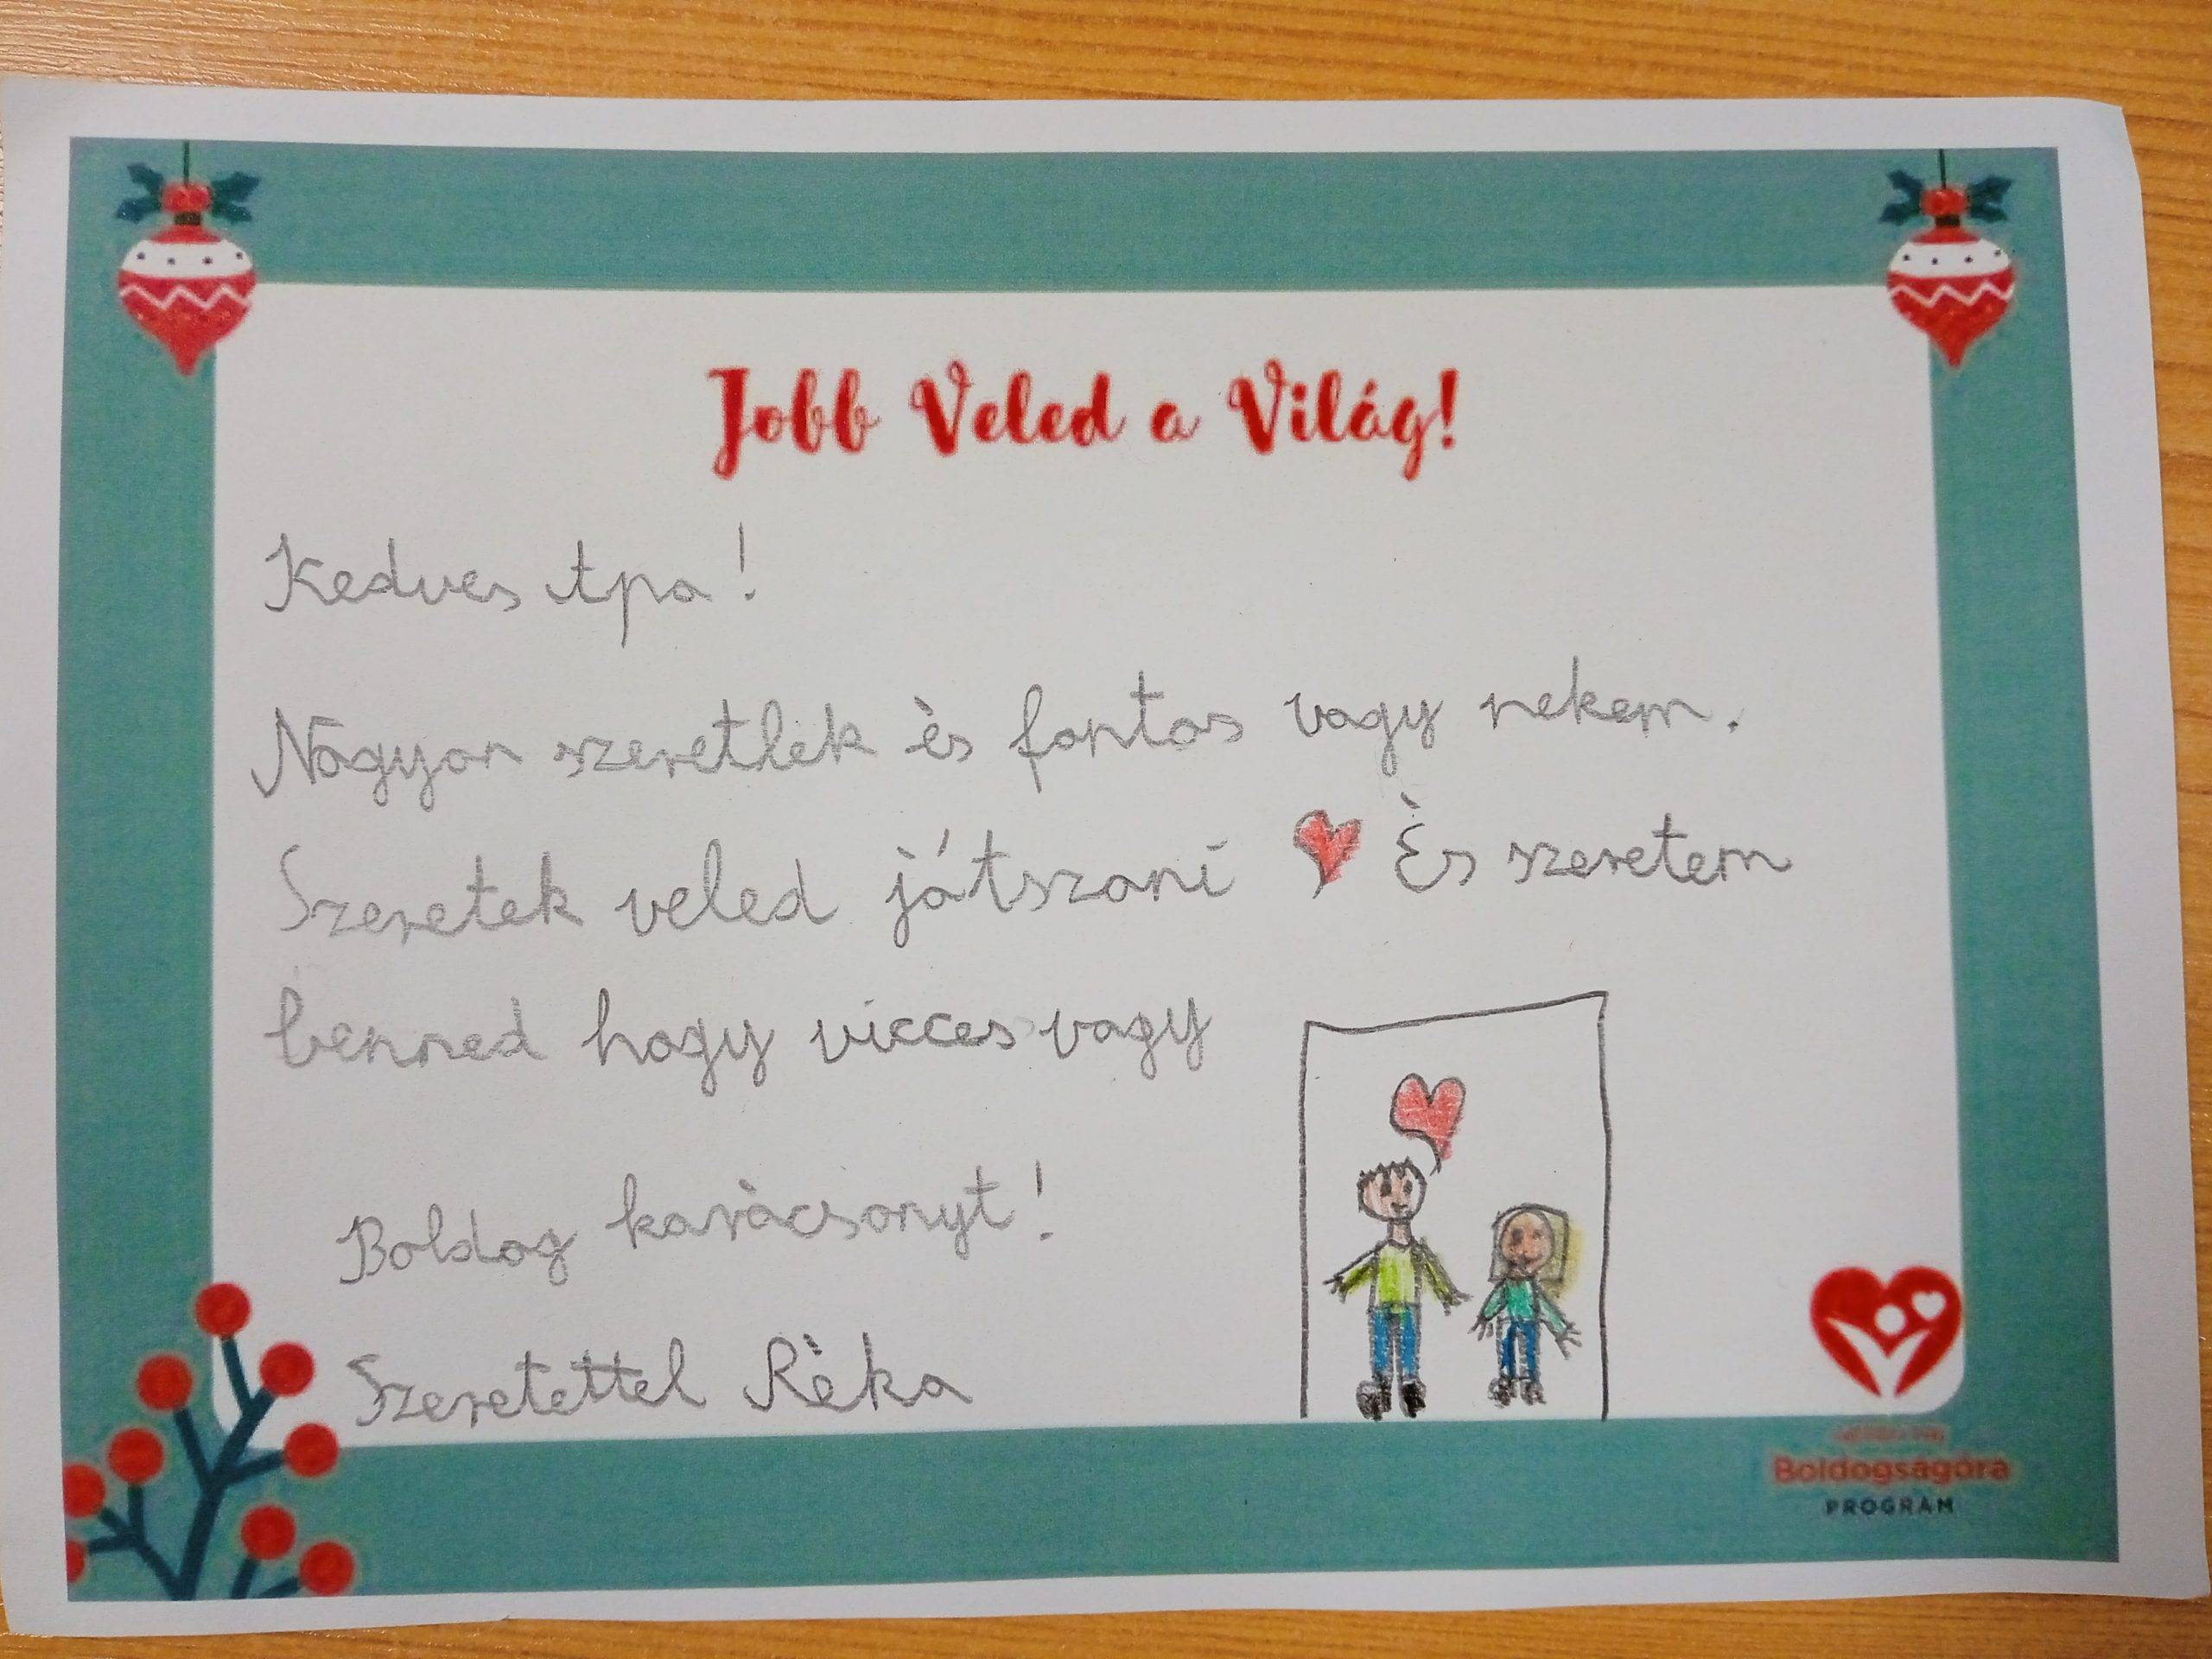 Jobb Veled a Világ!
Kedves Apa!
Nagyon szeretlek és fontos vagy nekem.
Szeretek veled játszani És szeretem
benned hogy vicces vagy
Boldog karácsonyt!
Szeretettel Réka
Boldogságóra
PROGRAM